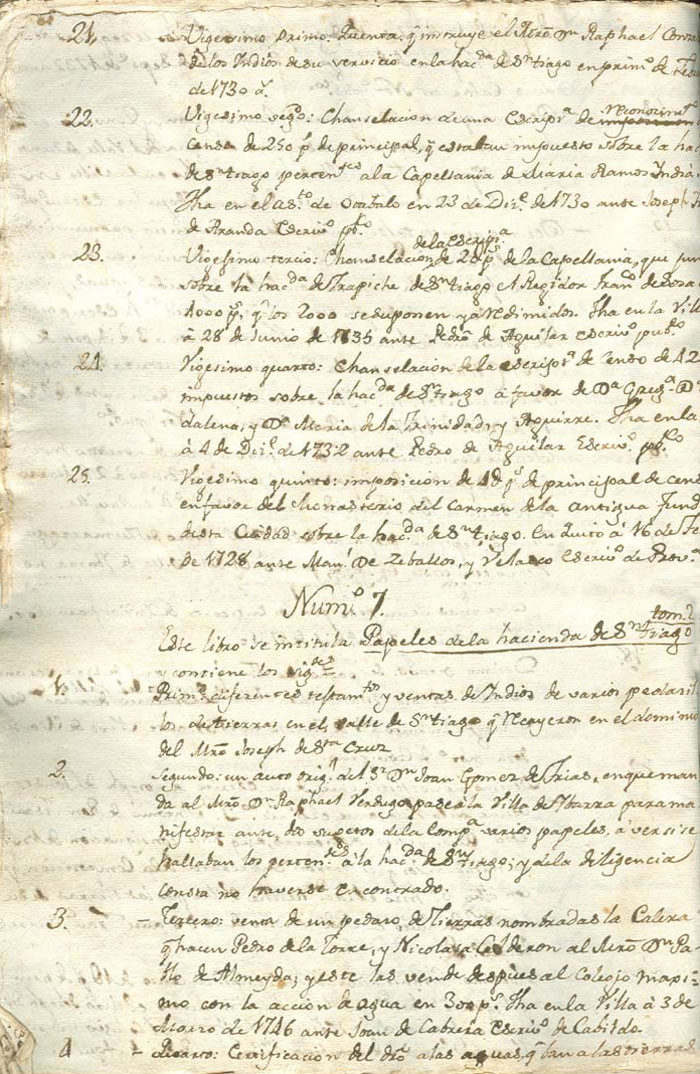 21, Vigessimo Primo: Quenta, q̃ instruye el Mr̃o Dn Raphael
de los Indios de su servicio en la hacda de Sntiago en primo de
de 1730 as
22. Vigesimo sego: Chanselacion de una Escripra de reconocimto
Censo de 250 ps de principal, q̃ estaban impuesto sobre la hac
de Sntiago pertentes a la Capellania de Maria Ramos India
Fha en el asto de Otabalo en 23 de Dize de 1730 ante Joseph
de Aranda Escrivo pbco
23. Vigesimo tercio: Chanselacion de la Escripra de 2U ps de la Capellania, que
sobre la hacda de Trapiche de Sntiago el Regidor Frano de
1000 ps, q̃ los 2000 se suponen ya redimidos. Fha en la Vill
à 28 de Junio de 1735 ante Pedro de Aguilar escrivo pubco
24. Vigesimo quarto: Chanselacion de la escripra de Censo de
impuestos sobre la hacda de Sntiago à favor de Da Grega
dalena, y Da Maria de la Trinidad, y Aguirre. Fha en la
à 4 de Dize de 1732 ante Pedro de Aguilar Escrivo pbco
25. Vigesimo quinto: imposicion de 4U ps de principal de cens
en favor del Monasterio del Carmen de la antigua Fund
desta Ciudad sobre la hacda de Sntiago. En Quito à 16 de
de 1728 ante Manl De Zeballos, y Velasco Escrivo de Prova
Numo 7.
Este libro se intitula Papeles de la hacienda de Sntiago tom. 2
y contiene los sigtes
1. Primo diferentes testamtos y ventas de Indios de varios pedasil
los de tierras en el valle de Sntiago q̃ recayeron en el dominio
del Mr̃o Joseph de Sta Cruz
2. Segundo: un auto origl del Sr Dn Joan Gomez de Frias, en que man
da al Mr̃o Dn Raphael Verdugo pase à la Villa de Ibarra para ma
nifestar ante dos sugetos de la Compa varios papeles, à ver si se
hallaban los pertentes à la hacda de Sntiago; y de la diligencia
consta no haverse encontrado.
3. - Tercero: venta de un pedazo de Tierras nombradas la Calera
q̃ hacen Pedro de la Torre, y Nicolasa Calderon al Mr̃o Dn Pa-
blo de Almeyda; y este las vende despues al Colegio maxi-
mo con la accion de agua en 300 ps. Fha en la Villa à 3 de
de 1746 ante Joan de Cabrera Escrivo de Cabildo.
4 - Quarto: Certificacion del dr̃o a las aguas, q̃ ban a las tierras